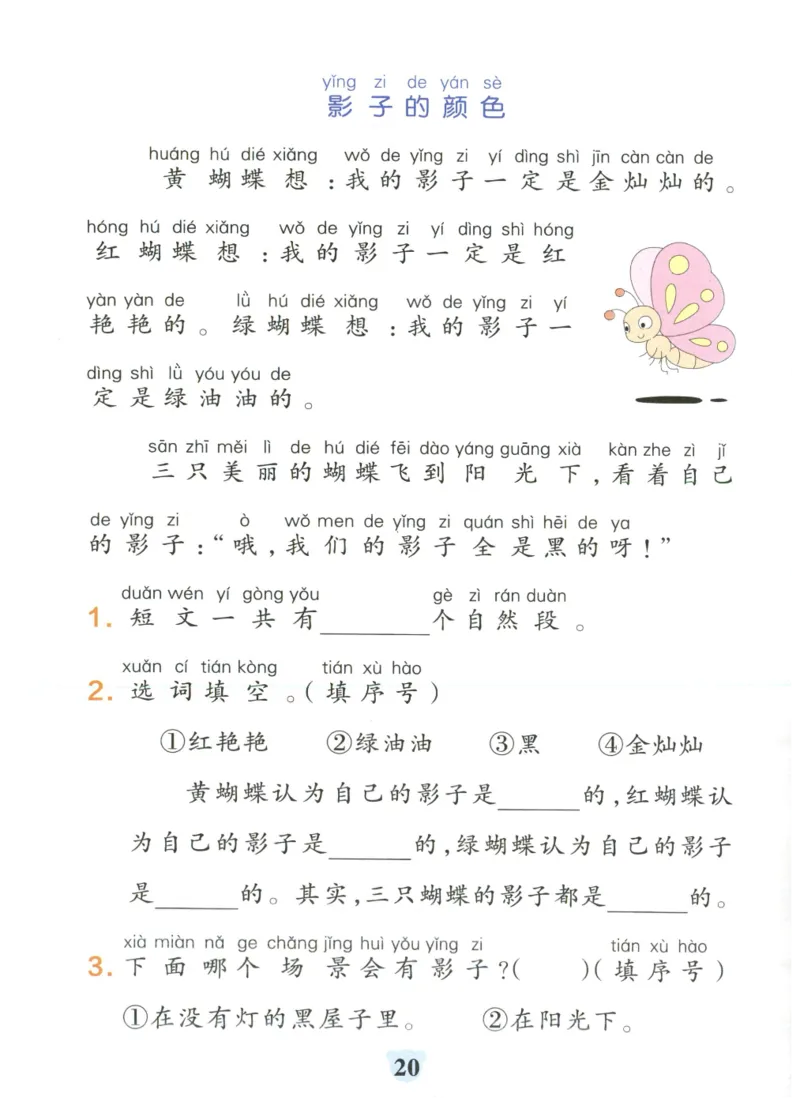 yǐng zi de yán sè
影子的颜色
huáng hú dié xiǎng wǒ de yǐng zi yí dìng shì jīn càn càn de
黄蝴蝶想：我的影子一定是金灿灿的。
hóng hú dié xiǎng wǒ de yǐng zi yí dìng shì hóng
红蝴蝶想：我的影子一定是红
yàn yàn de lǜ hú dié xiǎng wǒ de yǐng zi yí
艳艳的。绿蝴蝶想：我的影子一
dìng shì lǜ yóu yóu de
定是绿油油的。
sān zhī měi lì de hú dié fēi dào yáng guāng xià kàn zhe zì jǐ
三只美丽的蝴蝶飞到阳光下，看着自己
de yǐng zi ò wǒ men de yǐng zi quán shì hēi de ya
的影子：“哦，我们的影子全是黑的呀！”
duǎn wén yí gòng yǒu gè zì rán duàn
1. 短文一共有________个自然段。
xuǎn cí tián kòng tián xù hào
2. 选词填空。（填序号）
①红艳艳 ②绿油油 ③黑 ④金灿灿
黄蝴蝶认为自己的影子是______的，红蝴蝶认
为自己的影子是______的，绿蝴蝶认为自己的影子
是______的。其实，三只蝴蝶的影子都是______的。
xià miàn nǎ ge chǎng jǐng huì yǒu yǐng zi tián xù hào
3. 下面哪个场景会有影子？（ ）（填序号）
①在没有灯的黑屋子里。 ②在阳光下。
20